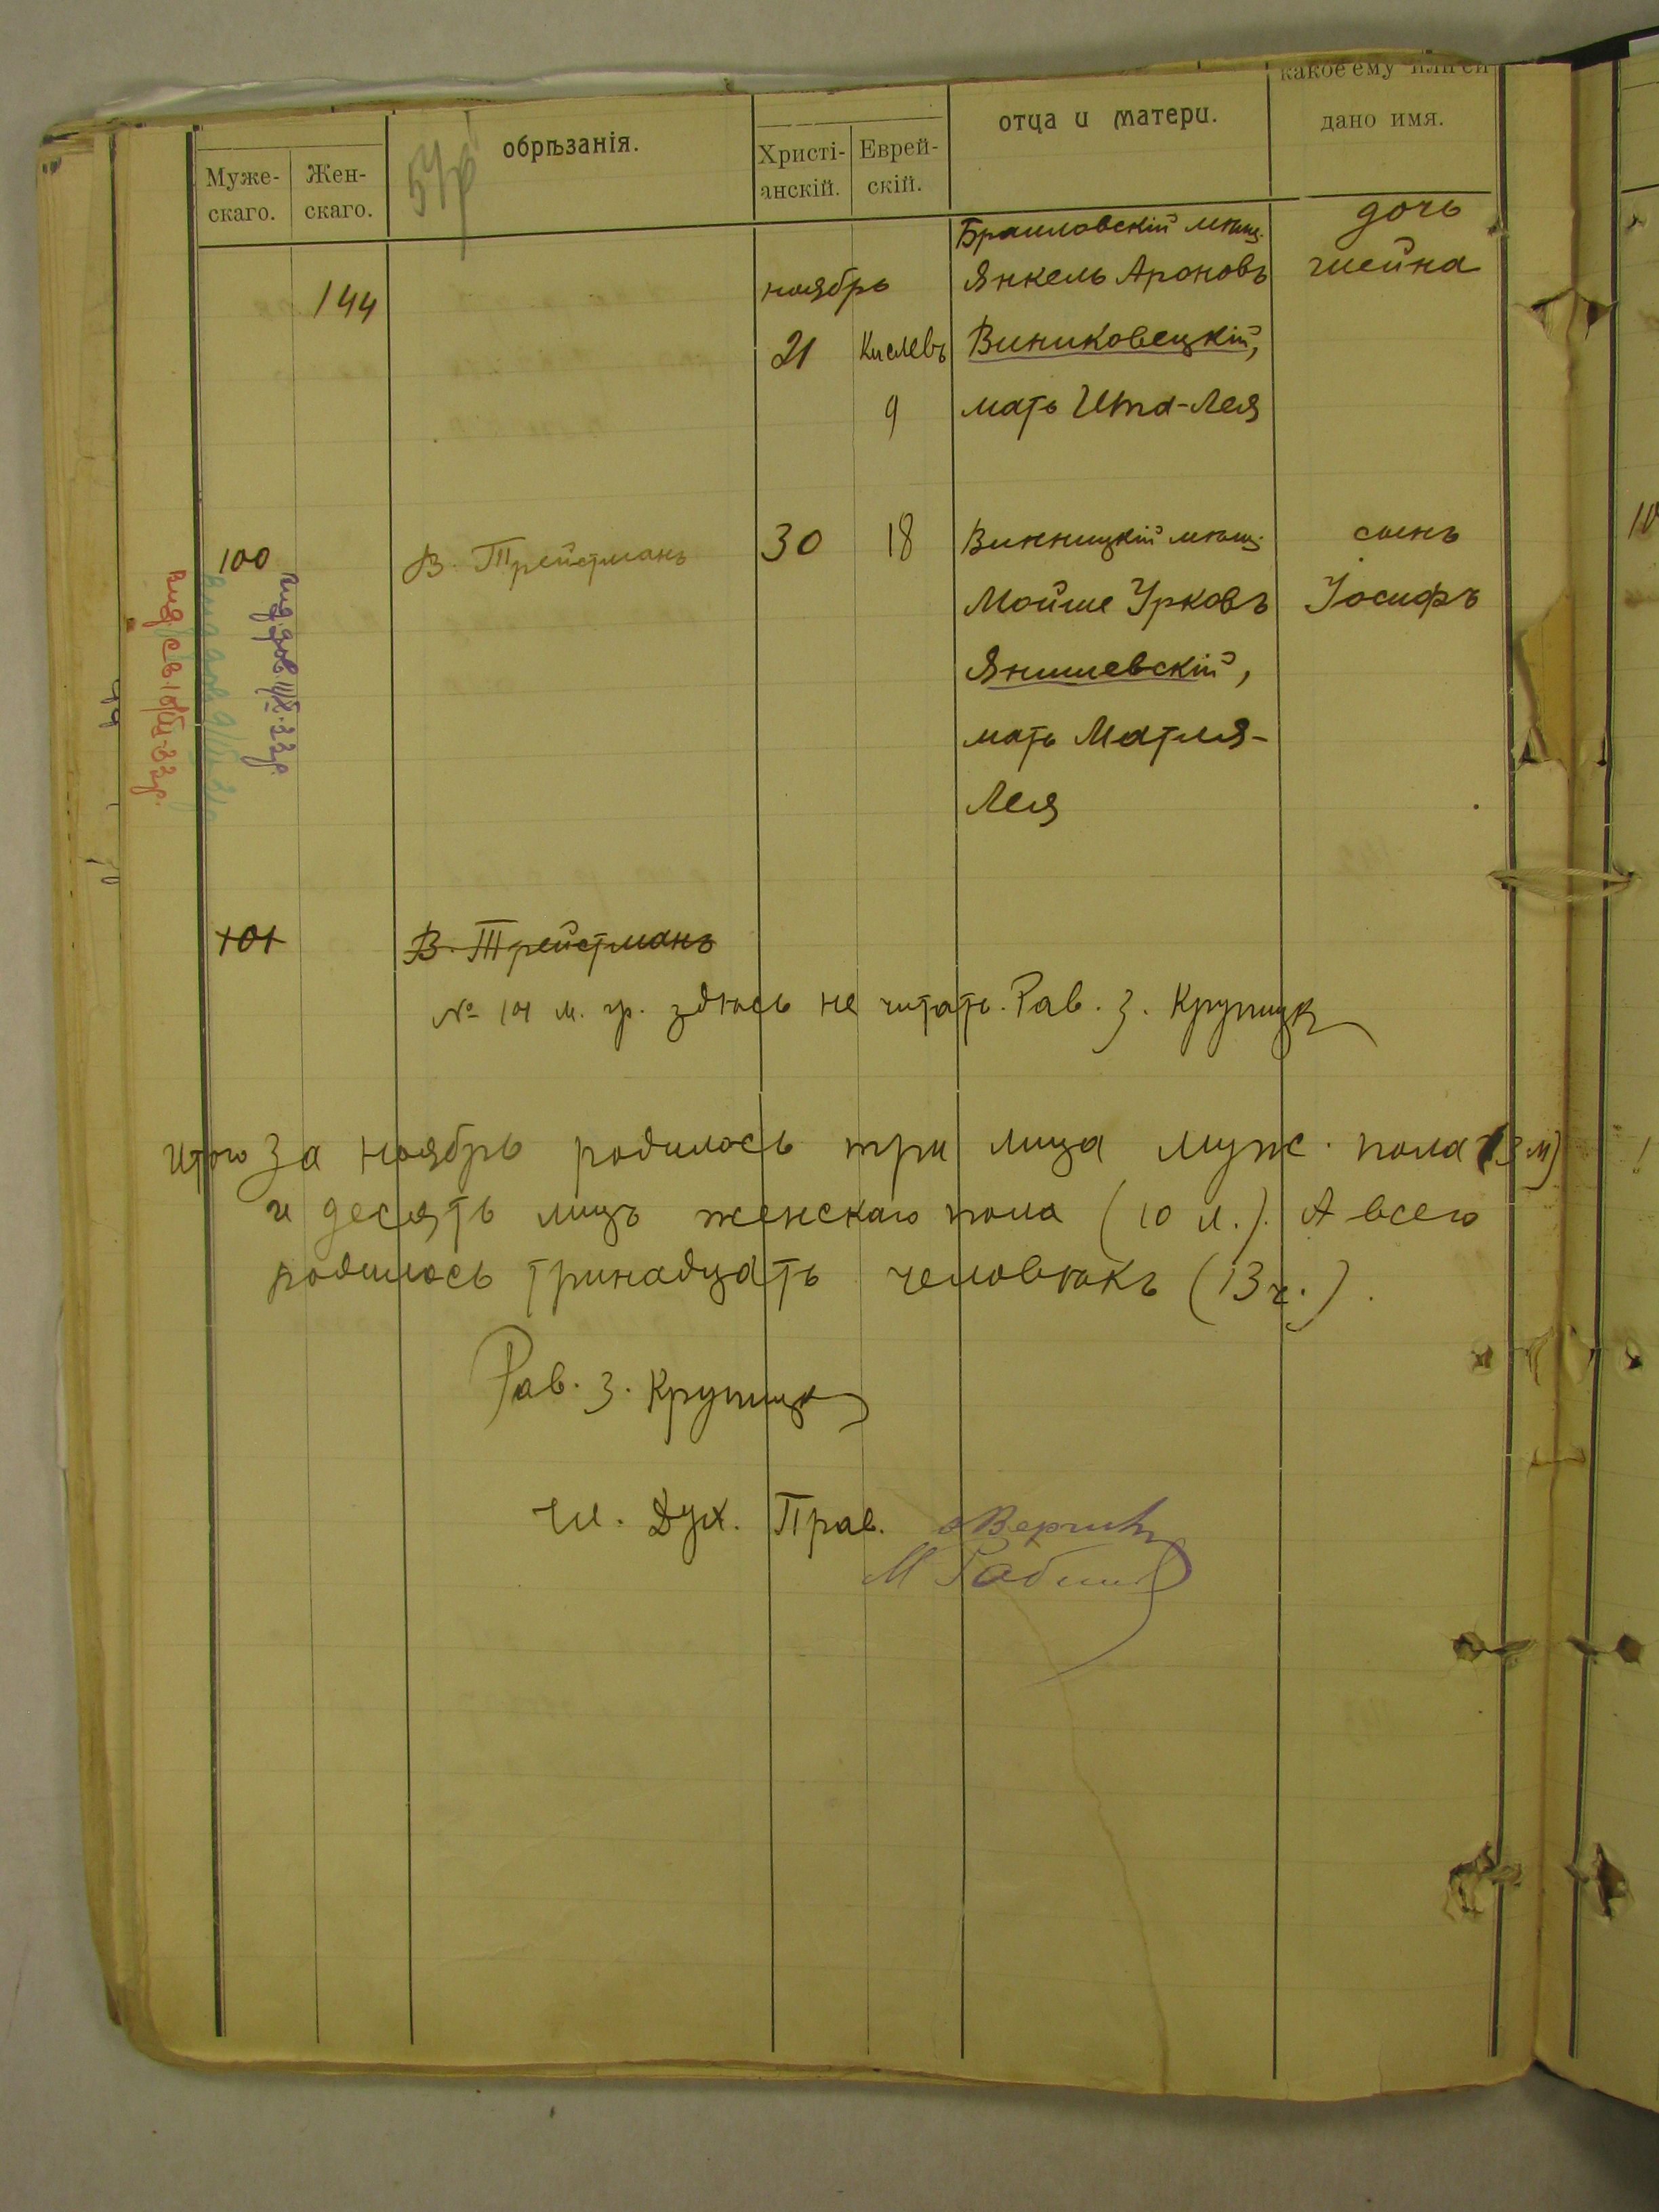 Муже-
скаго.
Жен-
скаго.
обрѣзанія.
Христі-
анскій.
Еврей-
скій.
отца и матери.
какое ему или ей
дано имя.
144
ноябрь
21
Кислевъ
9
Браиловскій мѣщ.
Янкель Ароновъ
Виниковецкій,
мать Ита-Лея
дочь
Шейна
100
В. Трейстманъ
30
18
Винницкій мѣщ.
Мойше Урковъ
Янишевскій,
мать Матля-
Лея
сынъ
Іосифъ
101
В. Трейстманъ
№ 101 м. гр. здѣсь не читать. Рав. З. Крупицк
Итого за ноябрь родилось три лица муж. пола (3 м)
и десять лицъ женскаго пола (10 л.). А всего
родилось тринадцать человѣкъ (13 ч.).
Рав. З. Крупицк
Чл. Дух. Прав.